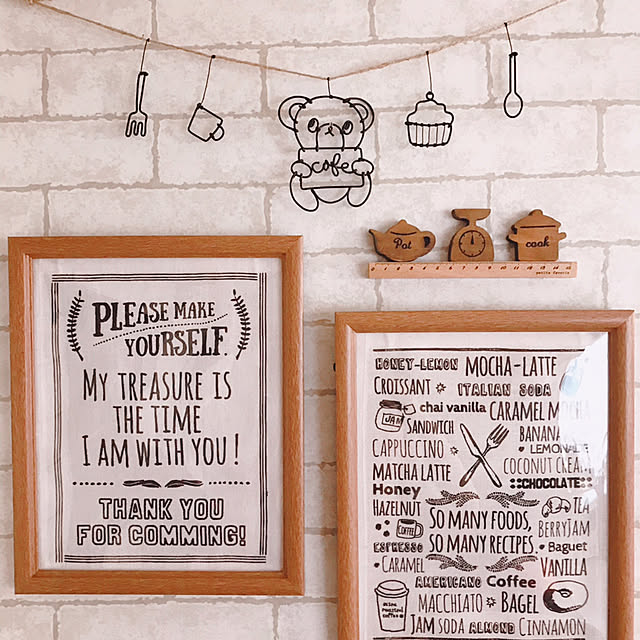 cafe
Pot
cook
PLEASE MAKE
YOURSELF.
MY TREASURE IS
THE TIME
I AM WITH YOU!
THANK YOU
FOR COMMING!
HONEY-LEMON MOCHA-LATTE
CROISSANT ITALIAN SODA
JAM chai vanilla CARAMEL MOCHA
SANDWICH BANANA
CAPPUCCINO LEMONADE
MATCHA LATTE COCONUT CREAM
Honey CHOCOLATE
HAZELNUT TEA
COFFEE SO MANY FOODS, BERRYJAM
ESPRESSO SO MANY RECIPES. Baguet
CARAMEL VANILLA
AMERICANO Coffee
MACCHIATO BAGEL
JAM SODA ALMOND CINNAMON